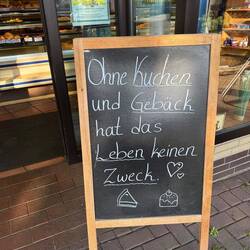 Ohne Kuchen
und Gebäck
hat das
Leben keinen
Zweck.